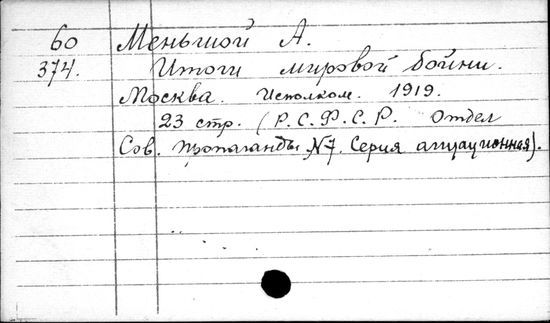 60 Меньшой А.
374. Итоги мировой бойни.
Москва. Исполком. 1919.
23 стр. (Р.С.Ф.С.Р. Отдел
Сов. пропаганды N7. Серия агитационная).